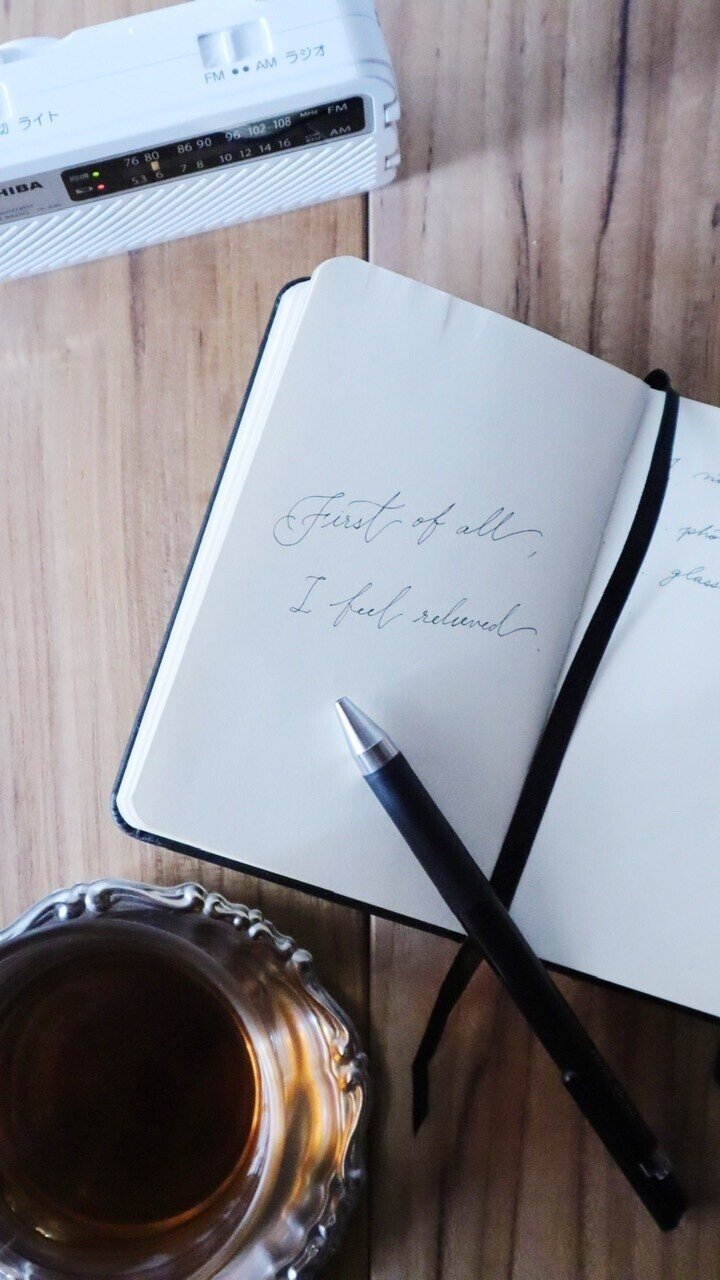 FM •• AM ラジオ
切 ライト
76 80 86 90 96 102 108 MHz FM
53 6 7 8 10 12 14 16 AM
HIBA
First of all,
I feel relieved.
pho
glass